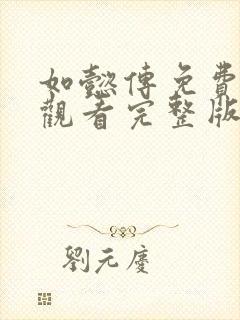 如懿傳免費
觀看完整版
劉元慶